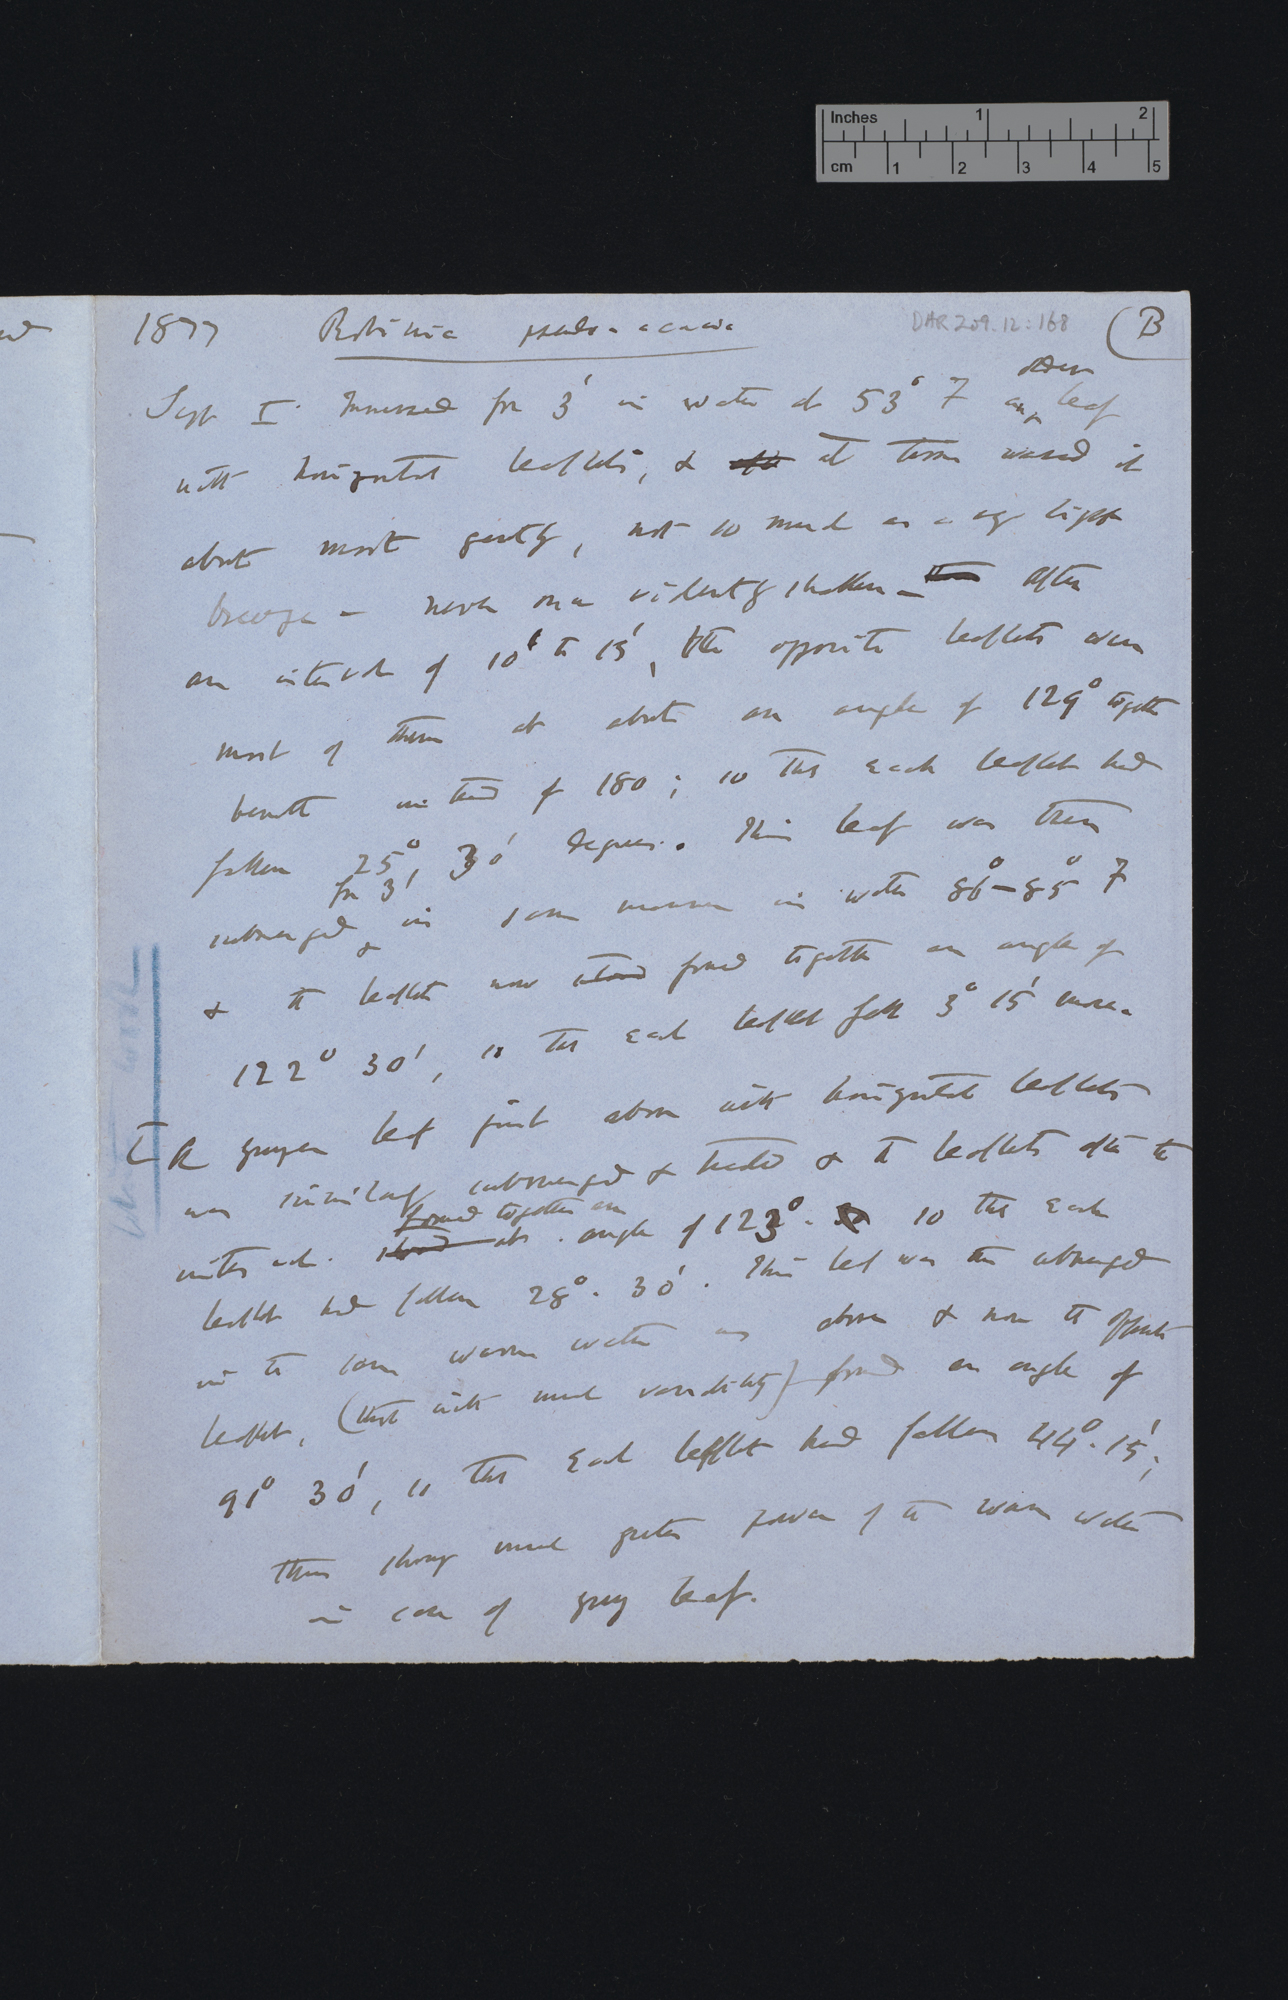 Inches 1 2
cm 1 2 3 4 5
1877 Robinia pseudo-acacia DAR 209.12:168 (B
older
Sept 1. Immersed for 3' in water at 53° F an leaf
with horizontal leaflets, & at times waved it
about most gently, not so much as a light
breeze — never once violently shaken — after
an interval of 10' to 15', the opposite leaflets were
most of them at about an angle of 129° together
beneath instead of 180; so that each leaflet had
fallen 25°, 30' degrees. This leaf was then
for 3'
submerged in same manner in water 86°–85° F
& the leaflets now stood formed together an angle of
122° 30', so that each leaflet fell 3° 15' more.
[A younger leaf just above with horizontal leaflets
was similarly submerged & treated & the leaflets after the
formed together an
angle of 123°. so that each
leaflet had fallen 28°. 30'. This leaf was then submerged
in the same warm water as above & now the opposite
leaflets, (but with much variability) formed an angle of
91° 30', so that each leaflet had fallen 44°. 15';
thus showing much greater power of the warm water
in case of young leaf.